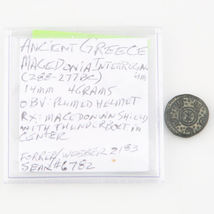 ANCIENT GREECE
MACEDONIA INTERREGNUM
(288-277BC) 4M
14MM 4GRAMS
OBV: PLUMED HELMET
RX: MACEDONIAN SHIELD
WITH THUNDERBOLT IN
CENTER
2183
SEAR #6782